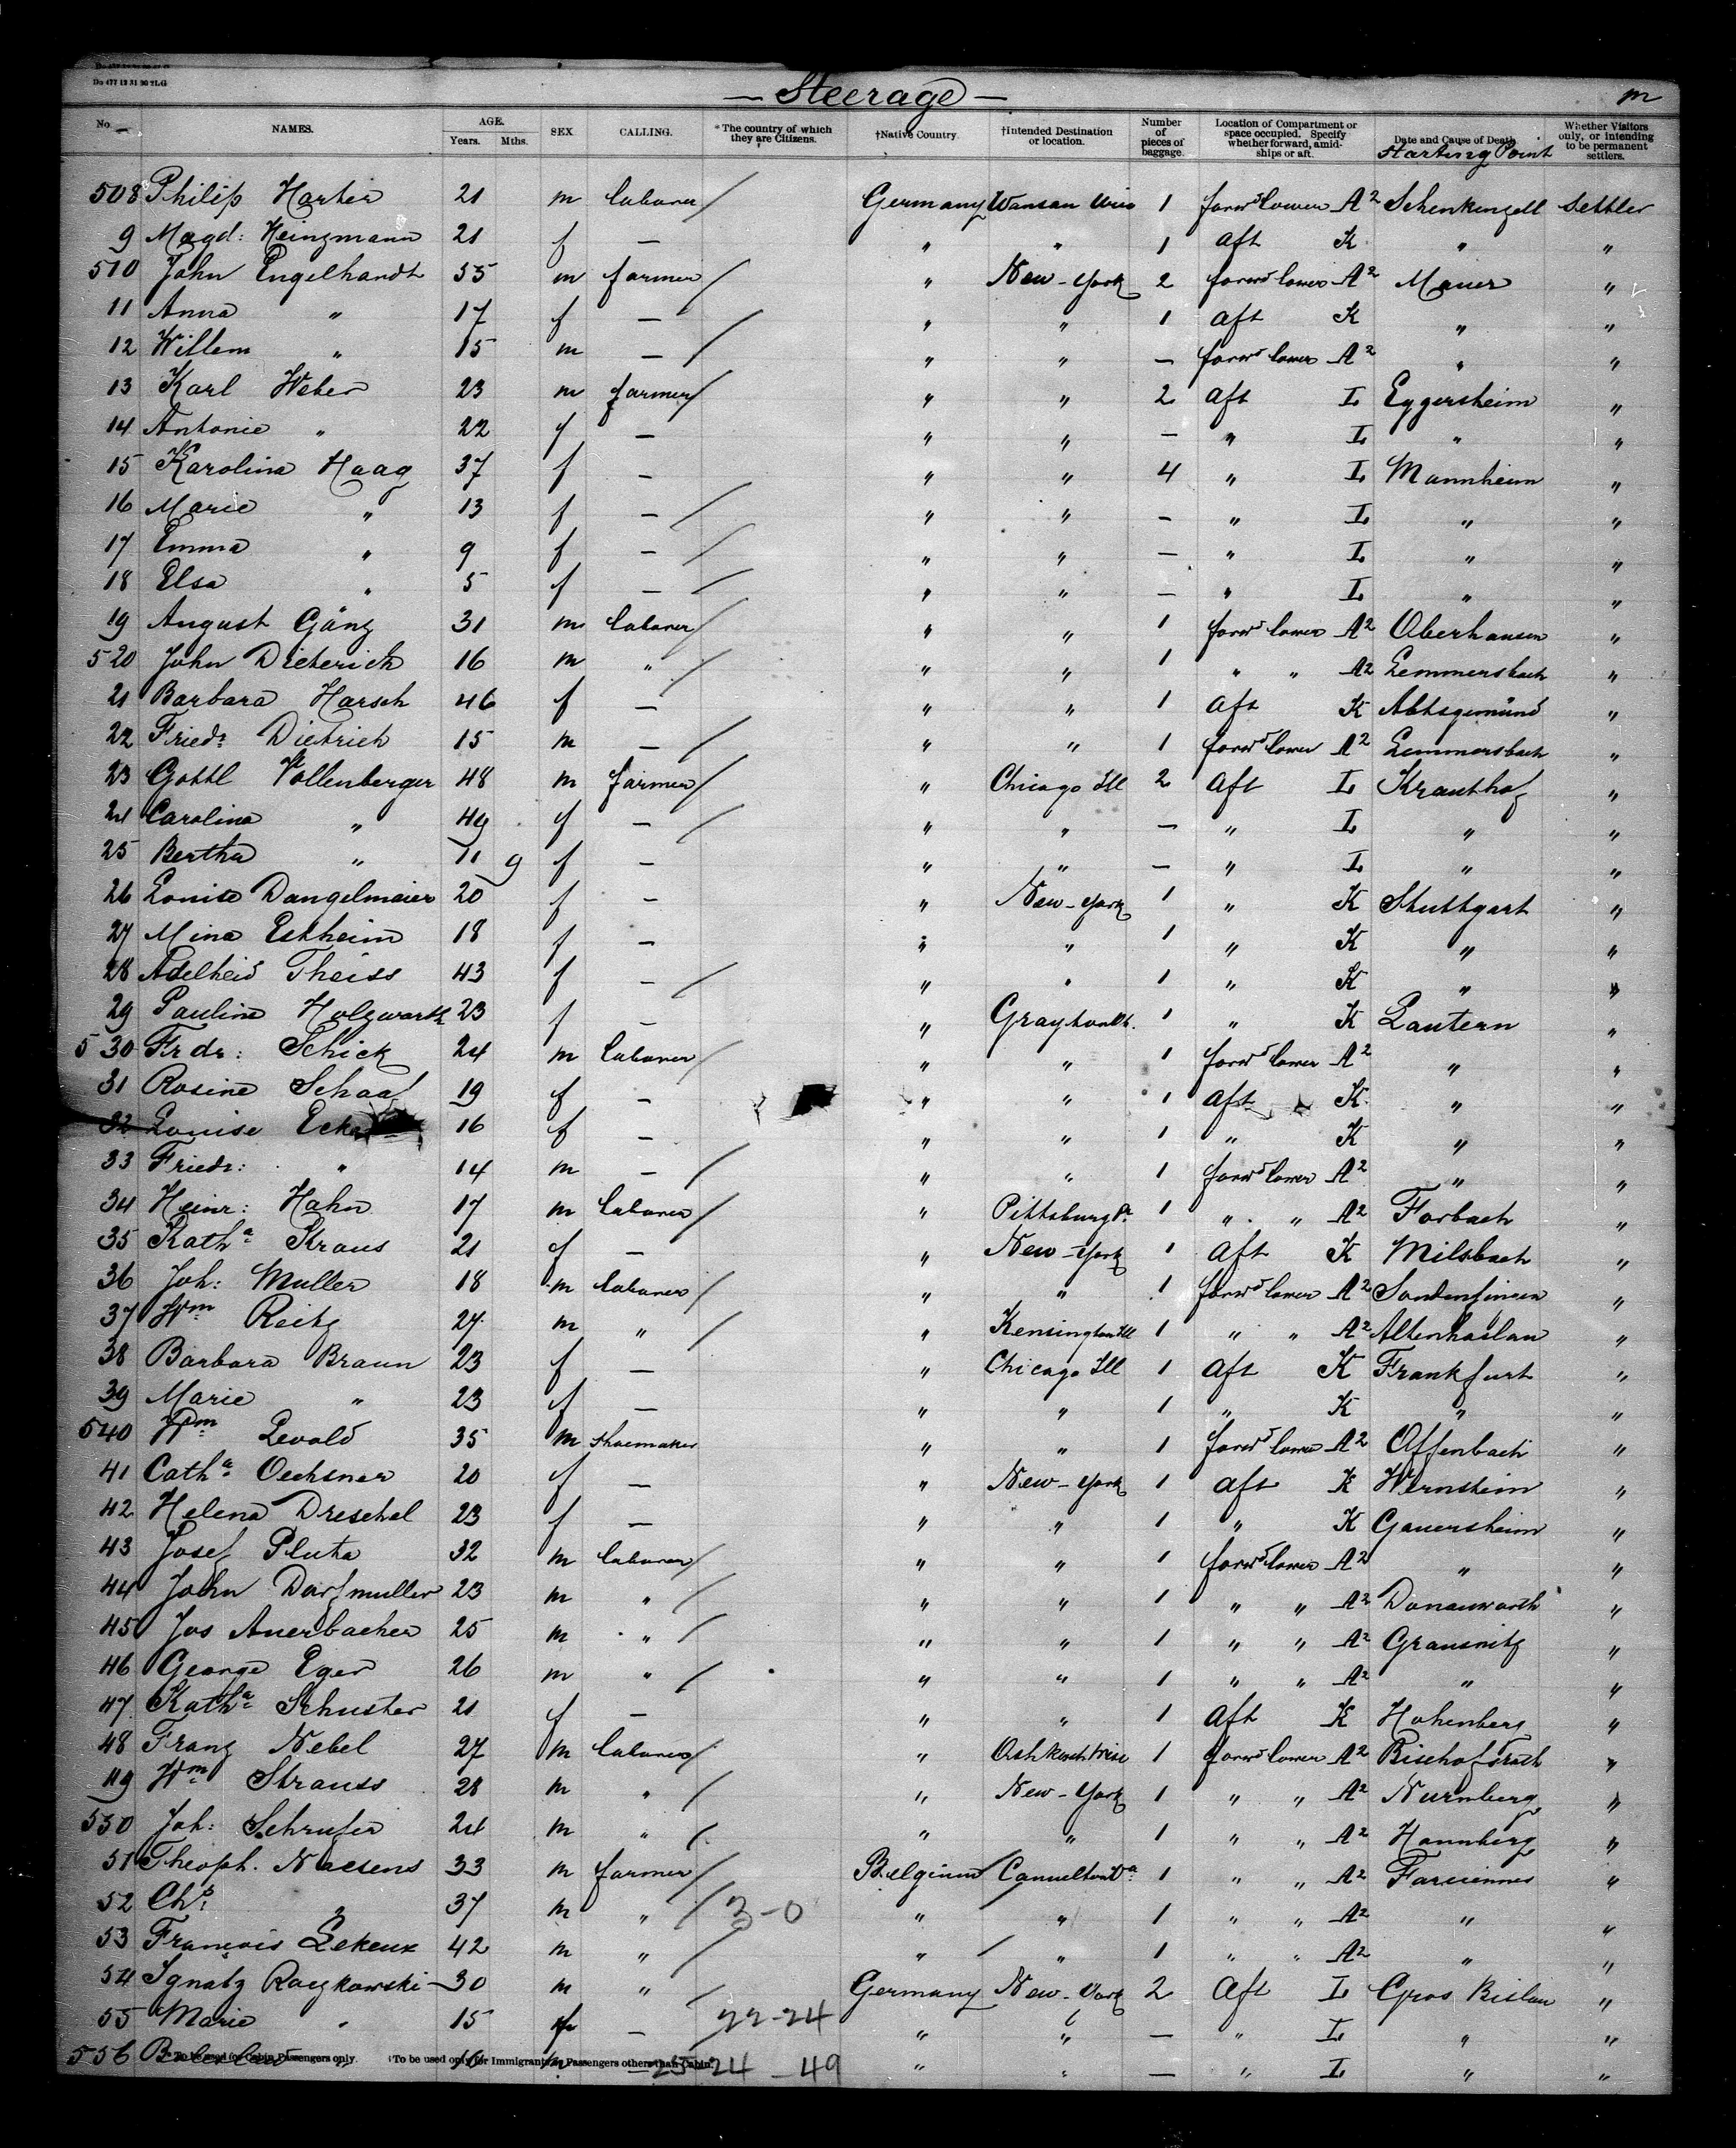 Do 477 12 31 90 2LG
— Steerage — m
No. NAMES. AGE. Years. Mths. SEX CALLING. *The country of which they are Citizens. †Native Country. †Intended Destination or location. Number of pieces of baggage. Location of Compartment or space occupied. Specify whether forward, amidships or aft. Date and Cause of Death Starting Point Whether Visitors only, or intending to be permanent settlers.
508 Philip Harter 21 m laborer / Germany Wausau Wis 1 forwd lower A2 Schenkenzell Settler
9 Magd: Heinzmann 21 f — " " 1 aft K " "
510 John Engelhardt 55 m farmer / " New-York 2 forwd lower A2 Mauer "
11 Anna " 17 f — " " 1 aft K " "
12 Willem " 15 m — / " " — forwd lower A2 " "
13 Karl Weber 23 m farmer / " " 2 aft L Eggersheim "
14 Antonie " 22 f — " " — " L " "
15 Karolina Haag 37 f — " " 4 " L Mannheim "
16 Marie " 13 f — / " " — " L " "
17 Emma " 9 f — / " " — " L " "
18 Elsa " 5 f — / " " — " L " "
19 August Gänz 31 m laborer / " " 1 forwd lower A2 Oberhausen "
520 John Dieterich 16 m " / " " 1 " " A2 Lemmersbach "
21 Barbara Harsch 46 f — " " 1 aft K Abtsgemünd "
22 Friedr Dietrich 15 m — / " " 1 forwd lower A2 Lemmersbach "
23 Gottl Vollenberger 48 m farmer / " Chicago Ill 2 aft L Krauthof "
24 Carolina " 49 f — / " " — " L " "
25 Bertha " 11 9 f — " " — " L " "
26 Louise Dangelmeier 20 f — " New-York 1 " K Stuttgart "
27 Mina Estheim 18 f — " " 1 " K " "
28 Adelheid Theiss 43 f — / " " 1 " K " "
29 Pauline Holzwarth 23 f — " 1 " K Lautern "
530 Frdr: Schick 24 m laborer / " " 1 forwd lower A2 " "
31 Rosine Schaaf 19 f — " " 1 aft K " "
32 Louise 16 f — " " 1 " K " "
33 Friedr: " 14 m — / " " 1 forwd lower A2 " "
34 Heinr: Hahn 17 m laborer / " Pittsburg Pa 1 " " A2 Forbach "
35 Katha Kraus 21 f — " New-York 1 aft K Milsbach "
36 Joh: Muller 18 m laborer / " " 1 forwd lower A2 "
37 Wm Reitz 24 m " / " Kensington Ill 1 " " A2 Altenhaslau "
38 Barbara Braun 23 f — " Chicago Ill 1 aft K Frankfurt "
39 Marie " 23 f — " " 1 " K " "
540 Wm Levold 35 m shoemaker " " 1 forwd lower A2 Offenbach "
41 Catha Oechsner 20 f — " New-York 1 aft K Wernsheim "
42 Helena Dreschel 23 f — " " 1 " K Gauersheim "
43 Josef Pluta 32 m laborer / " " 1 forwd lower A2 " "
44 John Dorfmuller 23 m " / " " 1 " " A2 Donauworth "
45 Jos Auerbacher 25 m " / " " 1 " " A2 Grausnitz "
46 George Eger 26 m " / " " 1 " " A2 " "
47 Katha Schuster 21 f — " " 1 aft K Hohenberg "
48 Franz Nebel 27 m laborer / " Oshkosh Wisc 1 forwd lower A2 "
49 Wm Strauss 28 m " / " New-York 1 " " A2 Nurnberg "
550 Joh: Schrufer 24 m " / " " 1 " " A2 Hannberg "
51 Theoph. Naesens 33 m farmer / Belgium / 1 " " A2 Farciennes "
52 Chs " 37 m " / 3-0 " " 1 " " A2 " "
53 François Lekeux 42 m " / " / " 1 " " A2 " "
54 Ignatz Raczkowski 30 m " / Germany New-York 2 aft L Gros Bislau "
55 Marie " 15 f — / 22-24 " " — " L " "
556 16 m — 25 24 — 49 " " — " L " "
*To be used for Cabin Passengers only. †To be used only for Immigrants or Passengers other than Cabin.